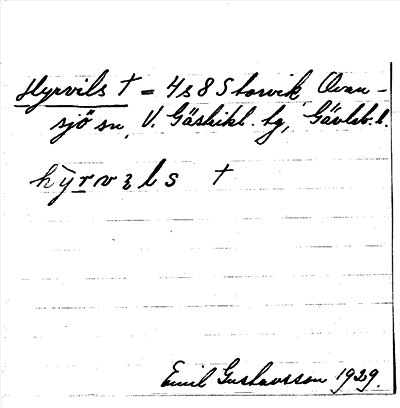 Hyrvils † = 4 s 8 Storvik Ovan-
sjö sn, V. Gästrikl. tg, Gävleb. l.
hy̆rvɜls †
Emil Gustavsson 1929.